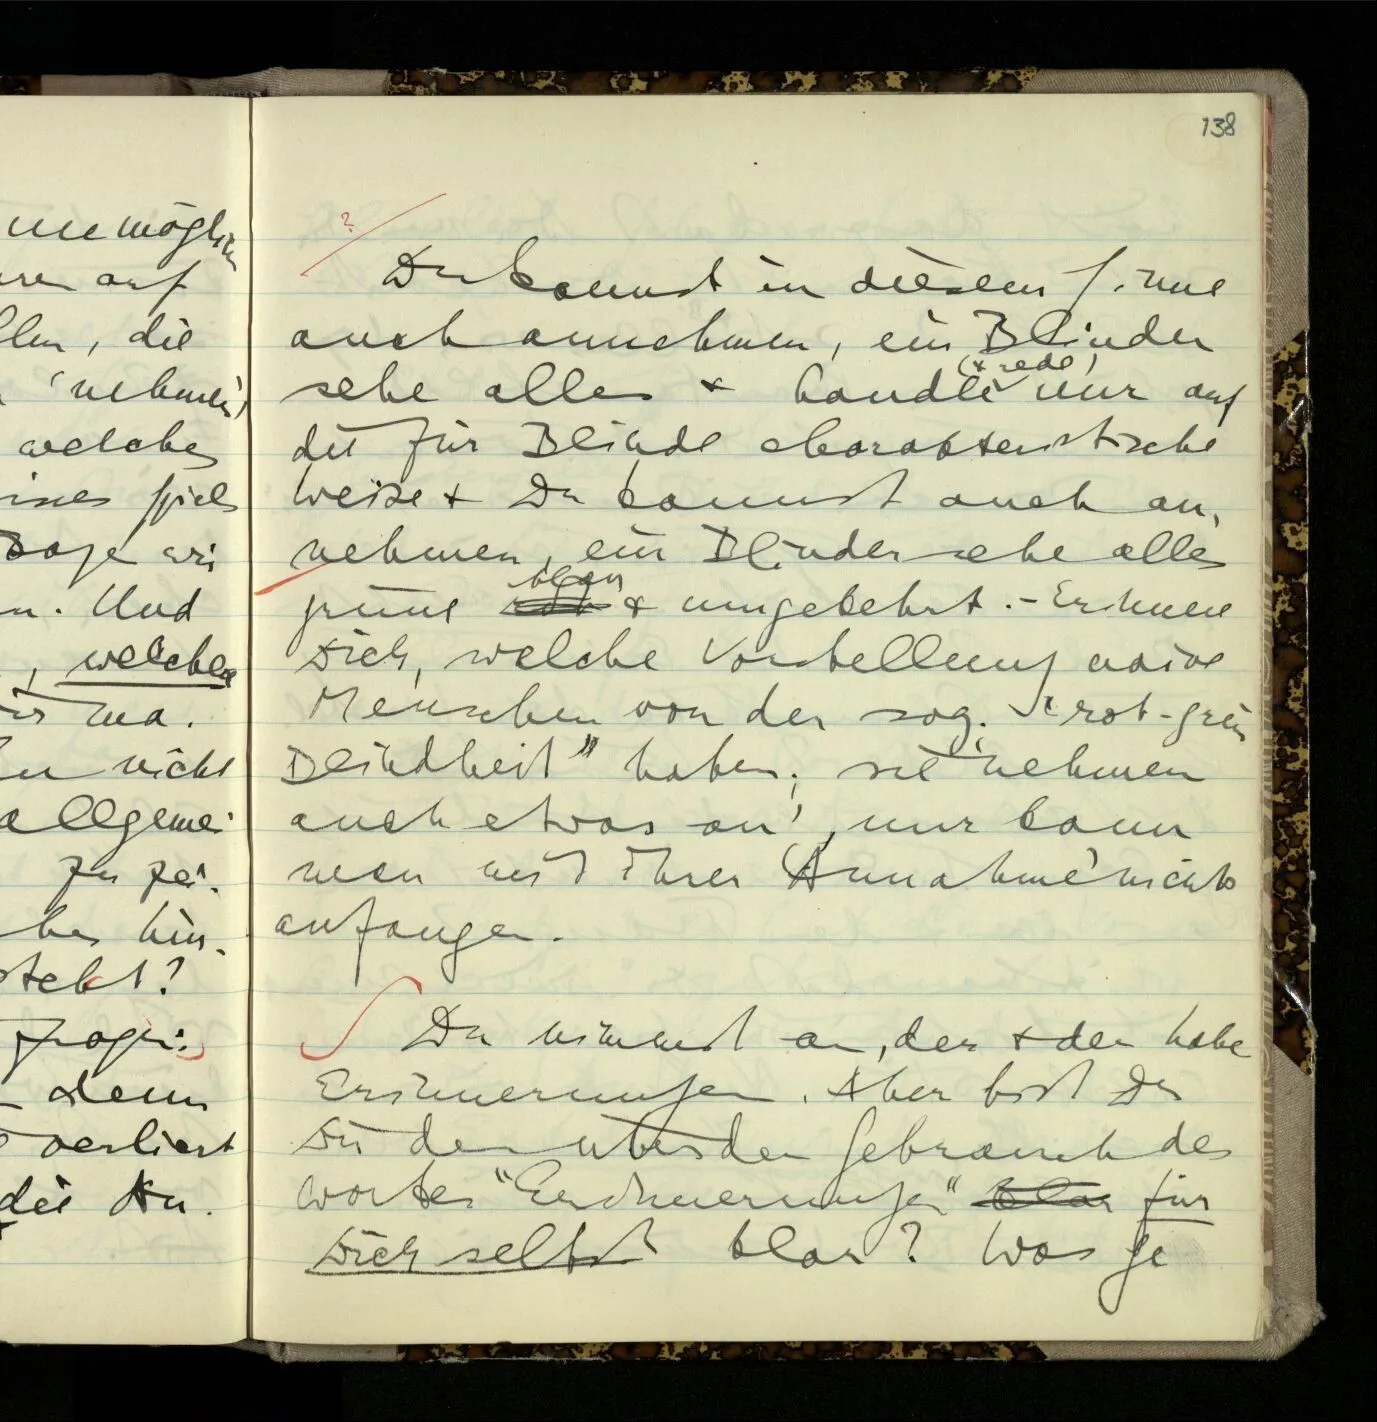 138
unmöglich
auf
, die
'nehmen'
welches
Spiels
wir
n. Und
, welcher
ma.
nicht
allgemei-
zu zei-
hin-
steht?
Frage:
denn
verliert
die An-
?
Du kannst in diesem Sinne
auch annehmen, ein Blinder
(+ rede)
sehe alles + handle nur auf
die für Blinde charakteristische
Weise + Du kannst auch an-
nehmen, ein Blinder sehe alles
blau
grüne rot + umgekehrt. – Erinnere
Dich, welche Vorstellung naive
Menschen von der sog. "rot-grün
Blindheit" haben; sie 'nehmen
auch etwas an', nur kann
man mit ihrer 'Annahme' nichts
anfangen.
Du nimmst an, der + der habe
Erinnerungen. Aber bist Du
Dir denn über den Gebrauch des
Wortes "Erinnerungen" klar für
Dich selbst klar? Was ge